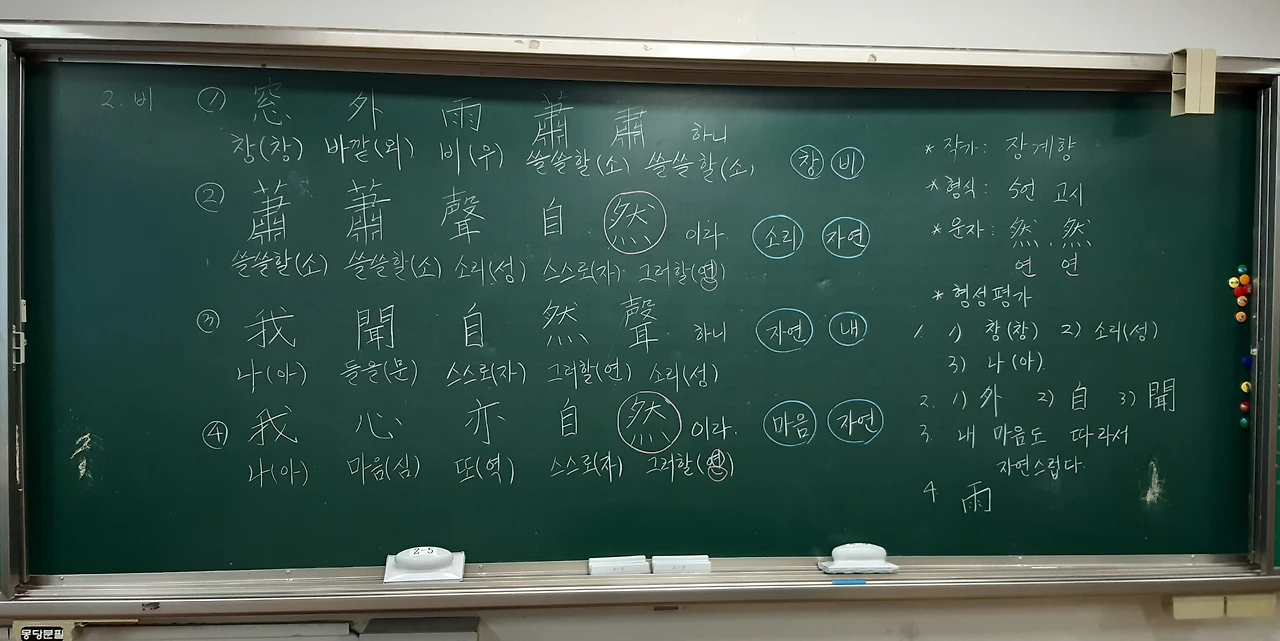 2. 비
① 窓 外 雨 蕭 蕭 하니
창(창) 바깥(외) 비(우) 쓸쓸할(소) 쓸쓸할(소) 창 비
② 蕭 蕭 聲 自 然 이라. 소리 자연
쓸쓸할(소) 쓸쓸할(소) 소리(성) 스스로(자) 그러할(연)
③ 我 聞 自 然 聲 하니 자연 내
나(아) 들을(문) 스스로(자) 그러할(연) 소리(성)
④ 我 心 亦 自 然 이라. 마음 자연
나(아) 마음(심) 또(역) 스스로(자) 그러할(연)
* 작가: 장계향
* 형식: 5언 고시
* 운자: 然, 然
연 연
* 형성평가
1. 1) 창(창) 2) 소리(성)
3) 나(아)
2. 1) 外 2) 自 3) 聞
3. 내 마음도 따라서
자연스럽다.
4. 雨
2-5
몽당분필